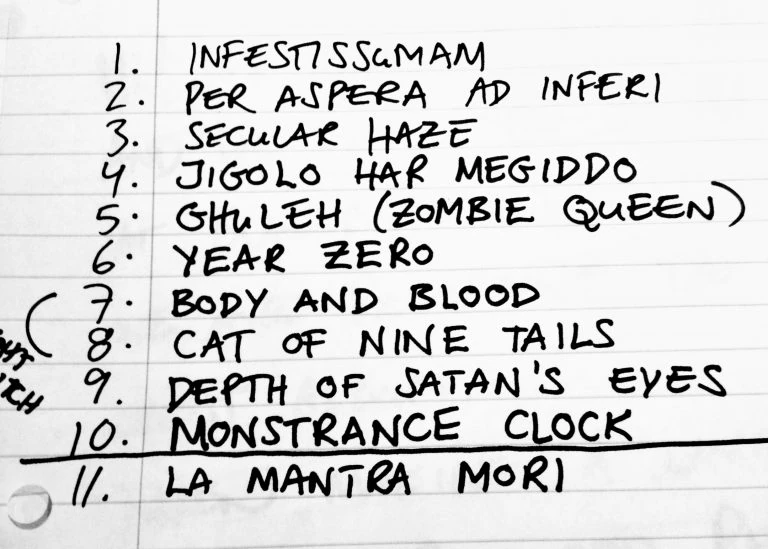 1. INFESTISSuMAM
2. PER ASPERA AD INFERI
3. SECULAR HAZE
4. JIGOLO HAR MEGIDDO
5. GHuLEH (ZOMBIE QUEEN)
6. YEAR ZERO
7. BODY AND BLOOD
8. CAT OF NINE TAILS
9. DEPTH OF SATAN'S EYES
10. MONSTRANCE CLOCK
11. LA MANTRA MORI